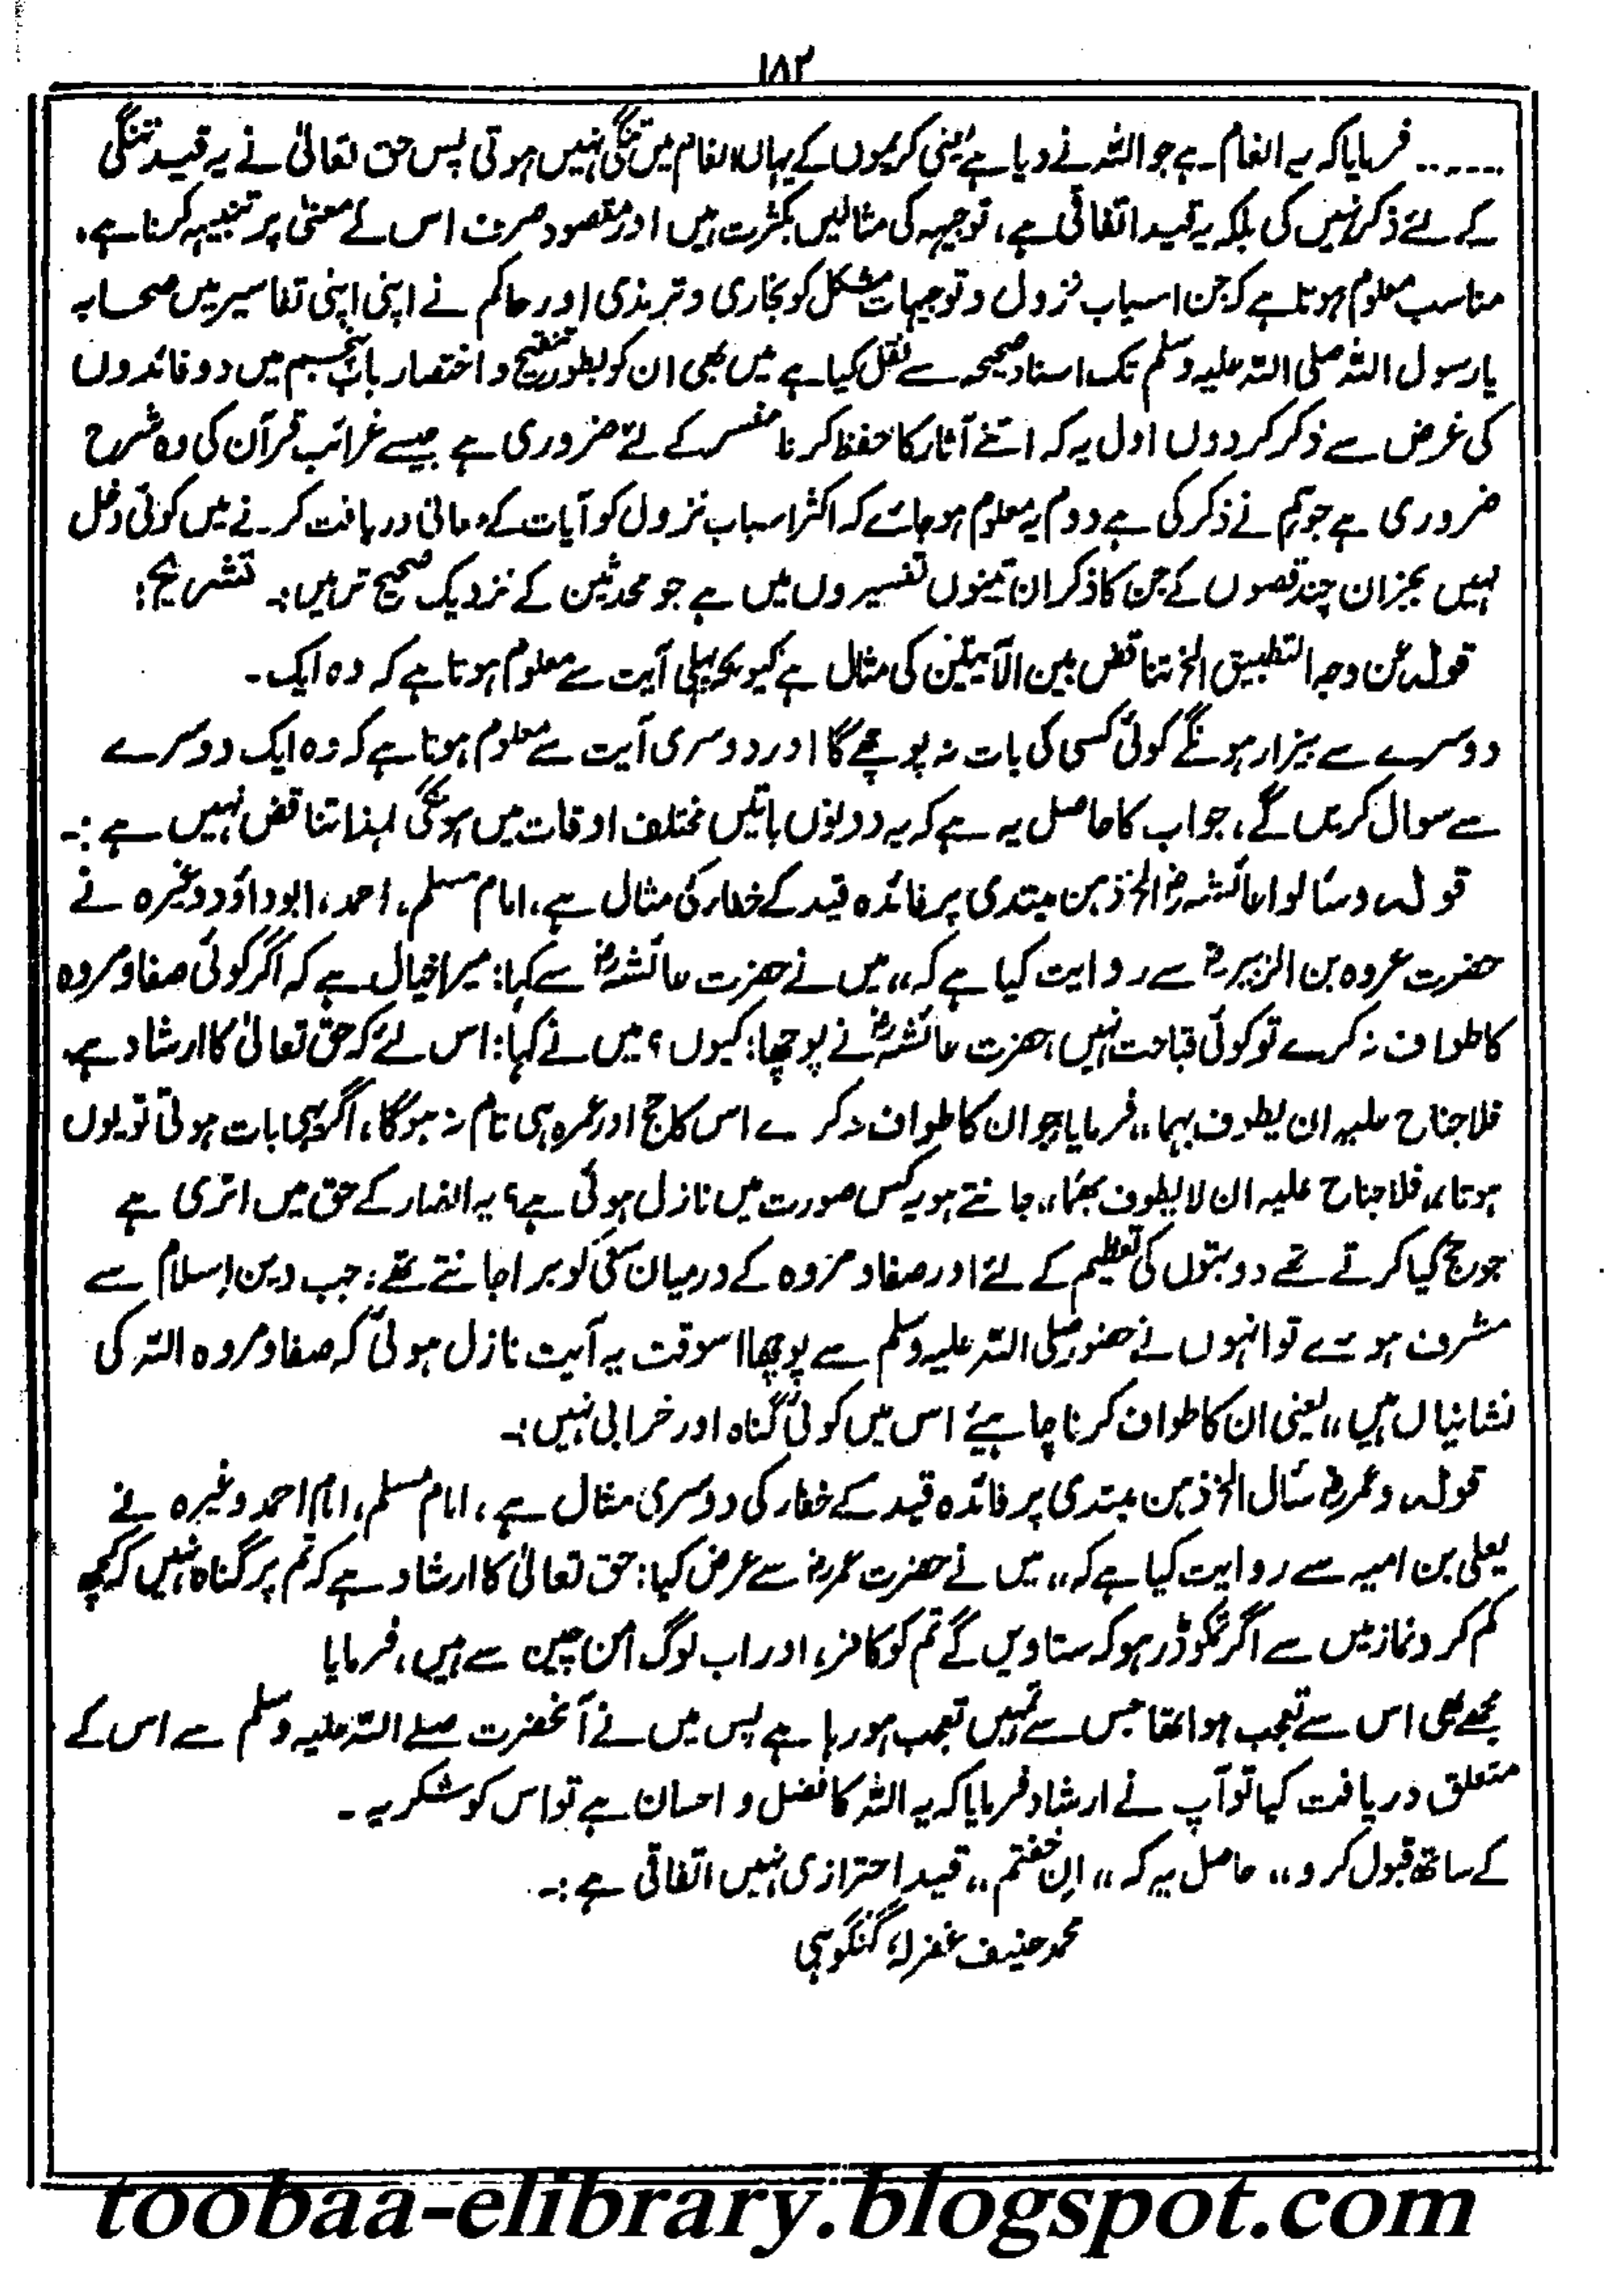 ۱۸۲
...... فرمایا کہ یہ انعام ہے جو اللہ نے دیا ہے یعنی کریموں کے یہاں انعام میں تنگی نہیں ہوتی پس حق تعالیٰ نے یہ قید تنگی
کے لئے ذکر نہیں کی بلکہ یہ قید اتفاقی ہے، توجیہہ کی مثالیں بکثرت ہیں اور مقصود صرف اس کے معنیٰ پر تنبیہہ کرنا ہے،
مناسب معلوم ہوتا ہے کہ جن اسباب نزول و توجیہات مشکل کو بخاری و ترمذی اور حاکم نے اپنی اپنی تفاسیر میں صحابہ
یا رسول اللہ صلی اللہ علیہ وسلم تک اسناد صحیحہ سے نقل کیا ہے میں بھی ان کو بطور تنقیح و اختصار باب پنجم میں دو فائدوں
کی غرض سے ذکر کردوں اول یہ کہ اتنے آثار کا حفظ کرنا مفسر کے لئے ضروری ہے جیسے غرائب قرآن کی وہ شرح
ضروری ہے جو ہم نے ذکر کی ہے دوم یہ معلوم ہو جائے کہ اکثر اسباب نزول کو آیات کے معانی دریافت کرنے میں کوئی دخل
نہیں بجز ان چند قصوں کے جن کا ذکر ان تینوں تفسیروں میں ہے جو محدثین کے نزدیک صحیح تر ہیں:۔ تشریح:
قولہ عن وجہ التطبیق الخ تناقض بین الآیتین کی مثال ہے کیونکہ پہلی آیت سے معلوم ہوتا ہے کہ وہ ایک۔
دوسرے سے بیزار ہونگے کوئی کسی کی بات نہ پوچھے گا اور دوسری آیت سے معلوم ہوتا ہے کہ وہ ایک دوسرے
سے سوال کریں گے، جواب کا حاصل یہ ہے کہ یہ دونوں باتیں مختلف اوقات میں ہونگی لہٰذا تناقض نہیں ہے:۔
قولہ وسألوا عائشۃ رض الخ ذہن مبتدی پر فائدہ قید کے خفار کی مثال ہے، امام مسلم، احمد، ابوداؤد وغیرہ نے
حضرت عروہ بن الزبیر رض سے روایت کیا ہے کہ ,, میں نے حضرت عائشہ رض سے کہا: میرا خیال ہے کہ اگر کوئی صفا و مروہ
کا طواف نہ کرے تو کوئی قباحت نہیں، حضرت عائشہ رض نے پوچھا: کیوں؟ میں نے کہا: اس لئے کہ حق تعالیٰ کا ارشاد ہے
فلاجناح علیہ ان یطوف بہما ,, فرمایا جو ان کا طواف نہ کرے اس کا حج اور عمرہ ہی تام نہ ہوگا، اگر یہی بات ہوتی تو یوں
ہوتا ,, فلاجناح علیہ ان لا یطوف بھما ,, جانتے ہو یہ کس صورت میں نازل ہوئی ہے؟ یہ انصار کے حق میں اتری ہے
جو حج کیا کرتے تھے دو بتوں کی تعظیم کے لئے اور صفا و مروہ کے درمیان سعی کو برا جانتے تھے: جب دین اسلام سے
مشرف ہوئے تو انہوں نے حضور صلی اللہ علیہ وسلم سے پوچھا اسوقت یہ آیت نازل ہوئی کہ صفا و مروہ اللہ کی
نشانیاں ہیں ,, یعنی ان کا طواف کرنا چاہیئے اس میں کوئی گناہ اور خرابی نہیں:۔
قولہ وعمر رض سأل الخ ذہن مبتدی پر فائدہ قید کے خفار کی دوسری مثال ہے، امام مسلم، امام احمد وغیرہ نے
یعلی بن امیہ سے روایت کیا ہے کہ ,, میں نے حضرت عمر رض سے عرض کیا: حق تعالیٰ کا ارشاد ہے کہ تم پر گناہ نہیں کہ کچھ
کم کرو نماز میں سے اگر تمکو ڈر ہو کہ ستاویں گے تم کو کافر، اور اب لوگ امن چین سے ہیں، فرمایا
مجھے بھی اس سے تعجب ہوا تھا جس سے تمہیں تعجب ہو رہا ہے پس میں نے آنحضرت صلے اللہ علیہ وسلم سے اس کے
متعلق دریافت کیا تو آپ نے ارشاد فرمایا کہ یہ اللہ کا فضل و احسان ہے تو اس کو شکریہ۔
کے ساتھ قبول کرو ,, حاصل یہ کہ ,, اِن خفتم ,, قید احترازی نہیں اتفاقی ہے:۔
محمد حنیف غفرلہٗ گنگوہی
toobaa-elibrary.blogspot.com